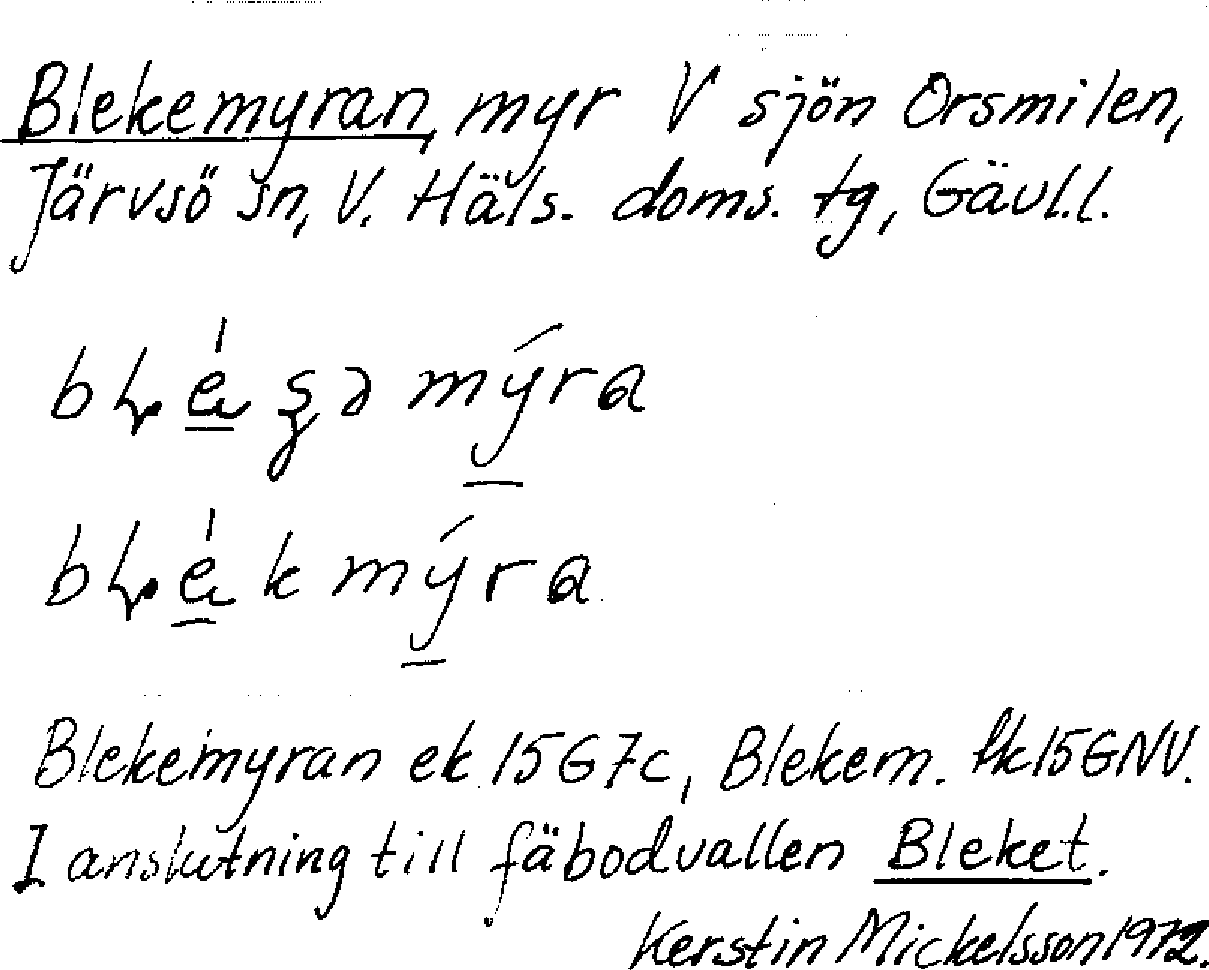 Blekemyran, myr V sjön Orsmilen,
Järvsö sn, V. Häls. doms. tg, Gävl.l.
mýra
k mýra
Blekemyran ek 15G7c, Blekem. tk15GNV.
I anslutning till fäbodvallen Bleket.
Kerstin Mickelsson 1972.